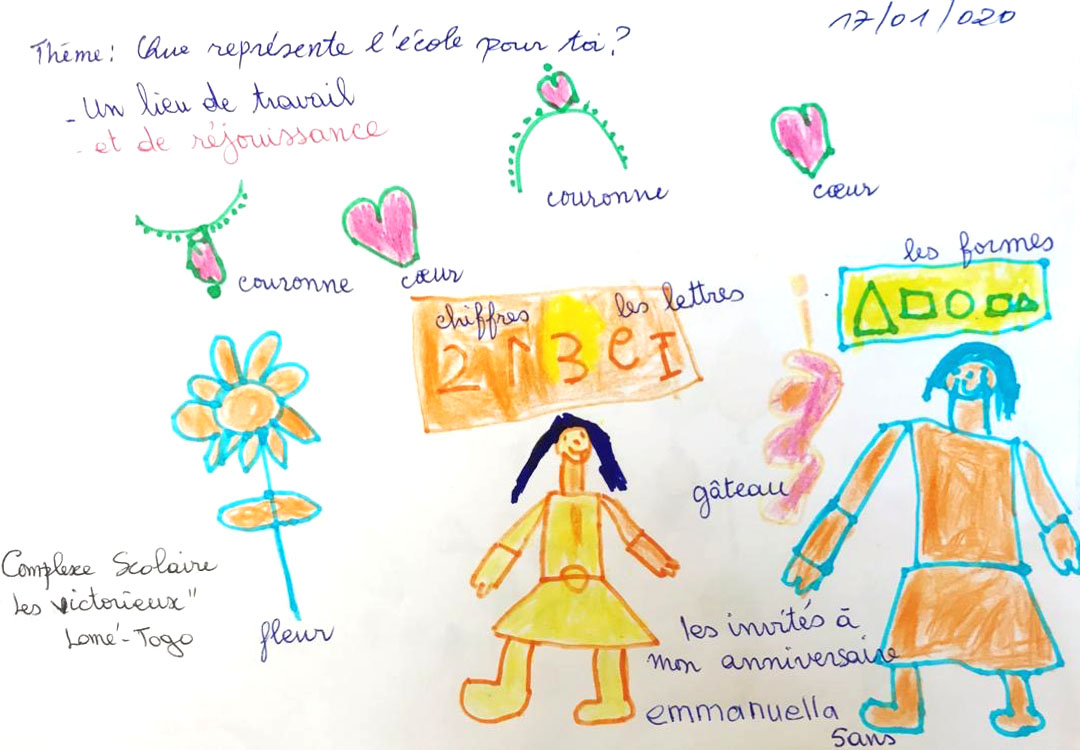 17/01/020
Thème: Que représente l'école pour toi?
- Un lieu de travail
- et de réjouissance
couronne
cœur
couronne
cœur
les formes
chiffres
les lettres
2 1 3 e I
gâteau
Complexe Scolaire
Les Victorieux"
Lomé-Togo
fleur
les invités à
mon anniversaire
emmanuella
5ans